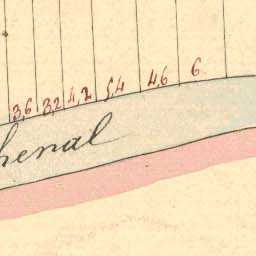 3,6 3,2 4,2 5,4 4,6 6
henal